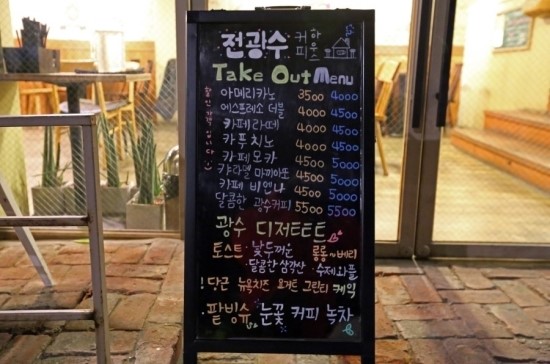 전광수 커피 하우스
Take Out Menu
아메리카노 3500 4000
에스프레소 더블 4000 4500
카페라떼 4000 4500
카푸치노 4000 4500
카페모카 4500 5000
캬라멜 마끼아또 4500 5000
카페 비엔나 4500 5000
달콤한 광수커피 5500 5500
광수 디저트트트
토스트 · 낯두꺼운 롱롱~베리
· 달콤한 삼각산 · 수제와플
! 당근 뉴욕치즈 요거트 그린티 케익
· 팥빙슈 눈꽃 커피 녹차